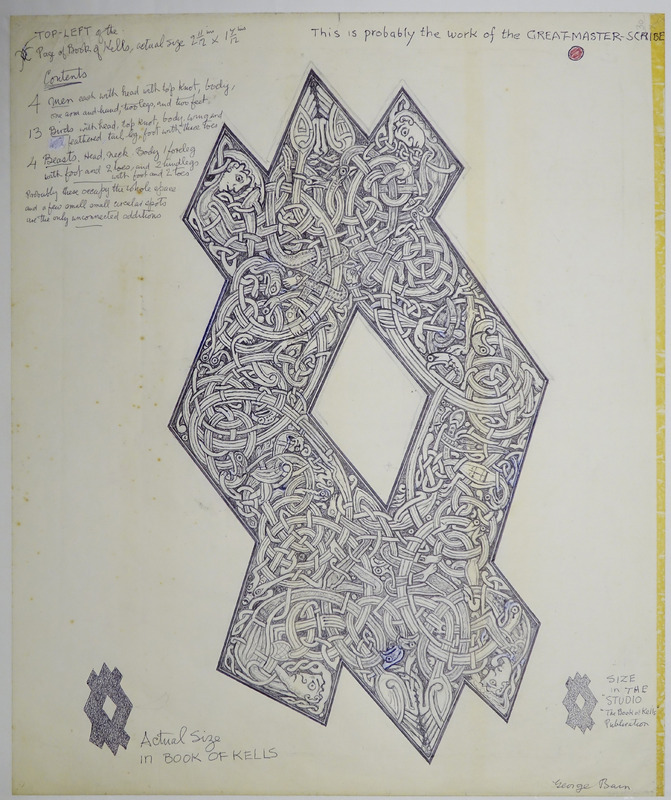 TOP-LEFT of the
Page of Book of Kells, actual size 2 11/12 ins × 1 7/12 ins
This is probably the work of the GREAT-MASTER-SCRIBE
Contents
4 Men each with head with top knot, body,
one arm and hand, two legs, and two feet.
13 Birds with head, top knot, body, wing and
feathered tail leg, foot with three toes
4 Beasts. Head, neck Body 1 foreleg
with foot and 2 toes, and 2 hindlegs
with foot and 2 toes
Probably these occupy the whole space
and a few small small circular spots
are the only unconnected additions
Actual Size
IN BOOK OF KELLS
SIZE
in THE
STUDIO
The Book of Kells
Publication
George Bain